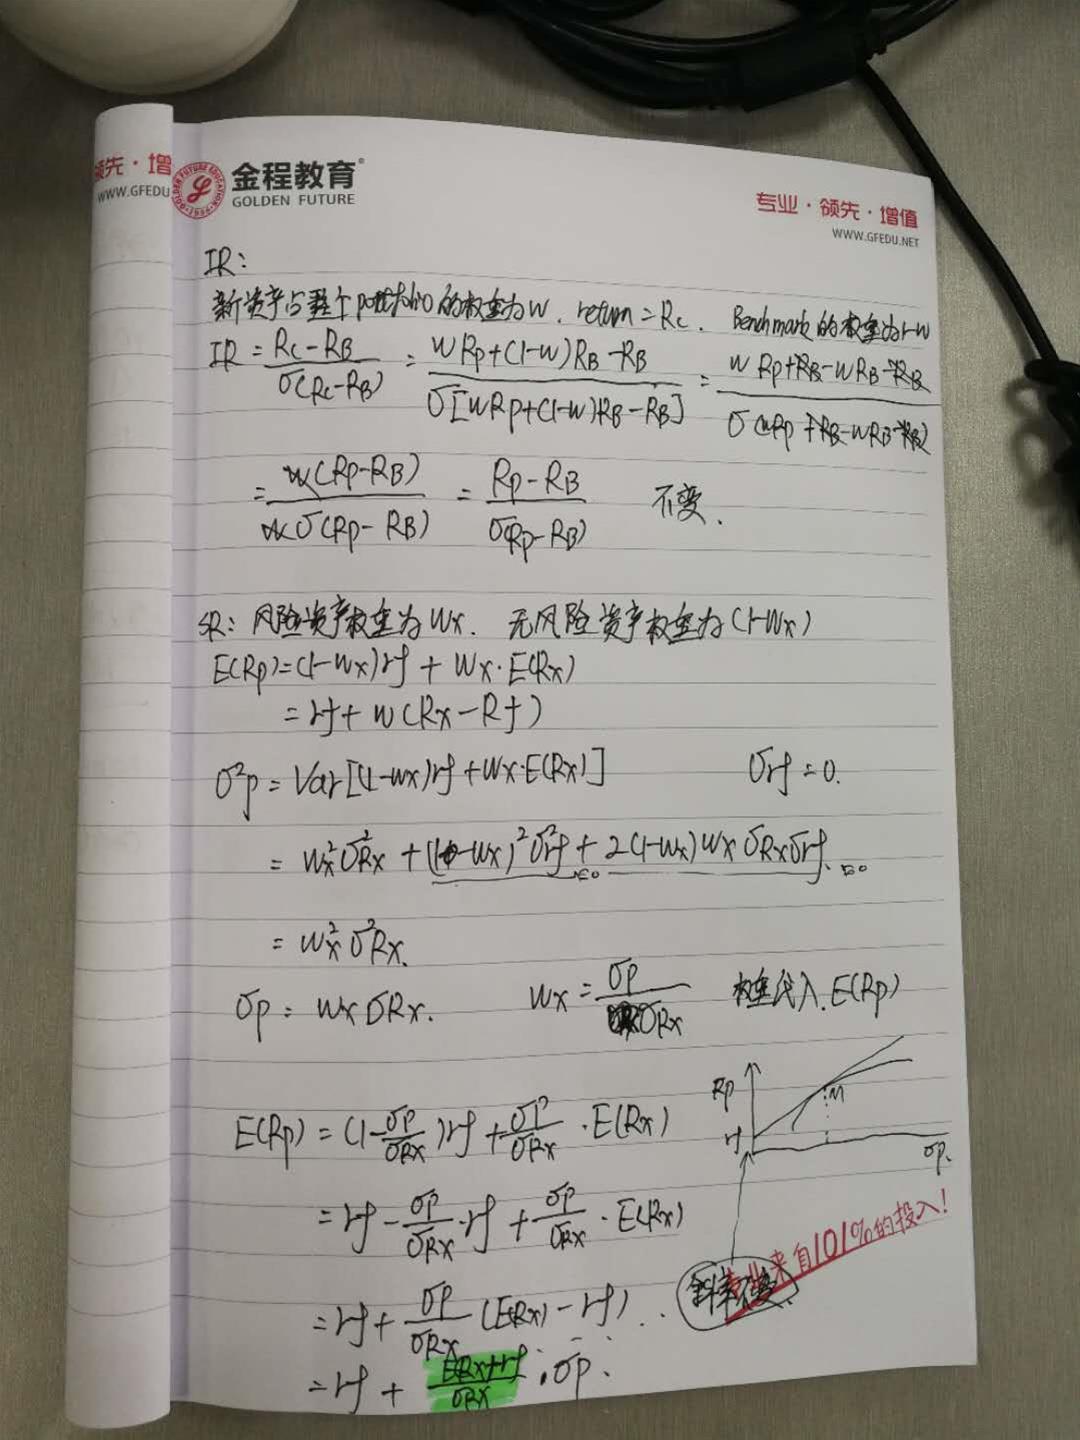 领先·增
WWW.GFEDU
金程教育®
GOLDEN FUTURE
专业·领先·增值
WWW.GFEDU.NET
IR:
新资产占整个portfolio的权重为w. return = Rc. Benchmark的权重为1-w
IR = (Rc-RB)/(σ(Rc-RB)) = (wRp+(1-w)RB-RB)/(σ[wRp+(1-w)RB-RB]) = (wRp+RB-wRB-RB)/(σ(wRp+RB-wRB-RB))
= (w(Rp-RB))/(wσ(Rp-RB)) = (Rp-RB)/(σ(Rp-RB)) 不变.
SR: 风险资产权重为Wx. 无风险资产权重为(1-Wx)
E(Rp)=(1-Wx)rf + Wx·E(Rx)
= rf + w(Rx-Rf)
σ²p = Var[(1-wx)rf+Wx·E(Rx)] σrf = 0.
= Wx²σ²Rx + (1-Wx)²σ²rf + 2(1-Wx)Wx σRxσrf. =0 =0
= Wx²σ²Rx.
σp = Wx σRx. Wx = σp/σRx 权重代入.E(Rp)
Rp
M
rf
σp.
E(Rp) = (1-σp/σRx)rf + σp/σRx · E(Rx)
= rf - σp/σRx · rf + σp/σRx · E(Rx)
专业来自101%的投入!
斜率不变.
= rf + σp/σRx (E(Rx) - rf) . .
= rf + (ERx+rf)/σRx · σp.